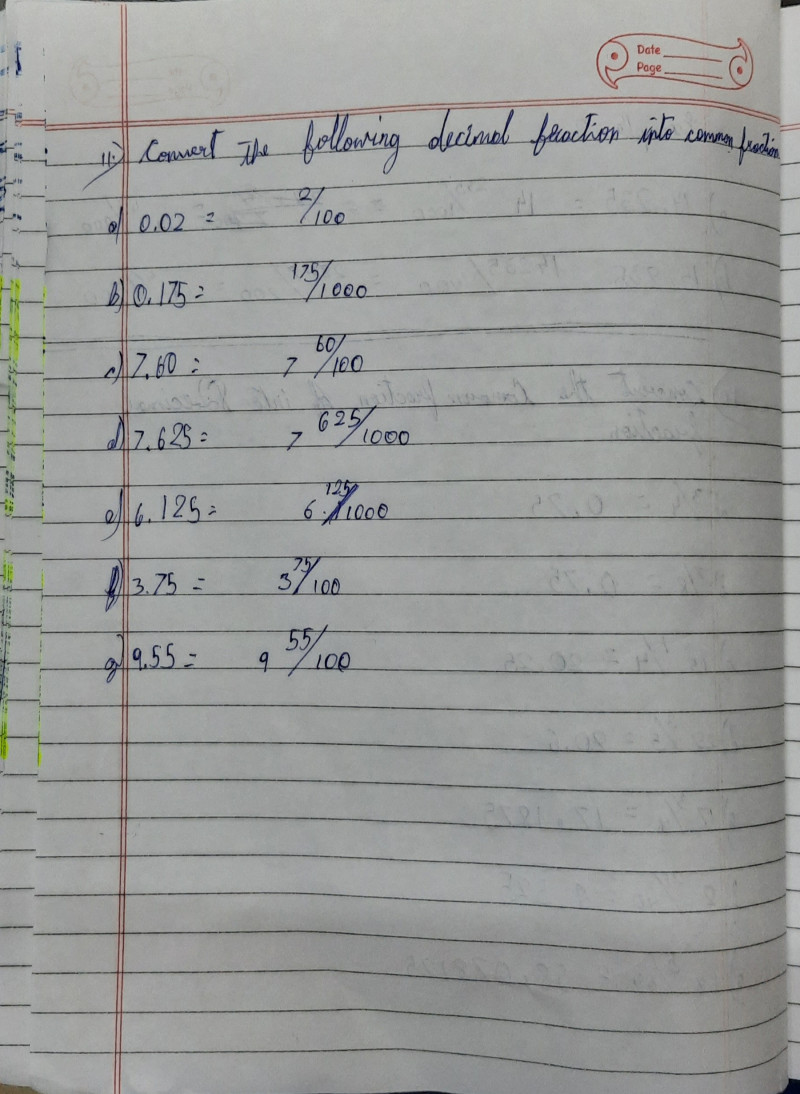 Date
Page
11.) Convert The following decimal fraction into common fraction
a) 0.02 = 2/100
b) 0.175 = 175/1000
c) 7.60 = 7 60/100
d) 7.625 = 7 625/1000
e) 6.125 = 6 125/1000
f) 3.75 = 3 75/100
g) 9.55 = 9 55/100